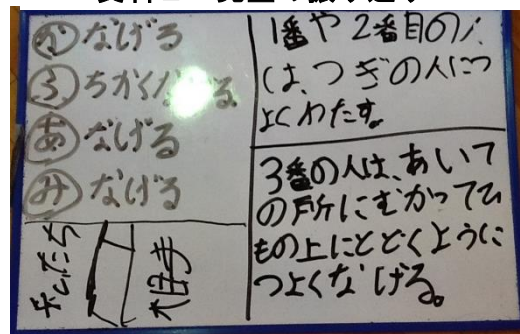 なげる
ちかくなげる
あ なげる
み なげる
相手
1番や2番目の人
は、つぎの人につ
よくわたす。
3番の人は、あいて
の所にむかってひ
もの上にとどくように
つよくなげる。